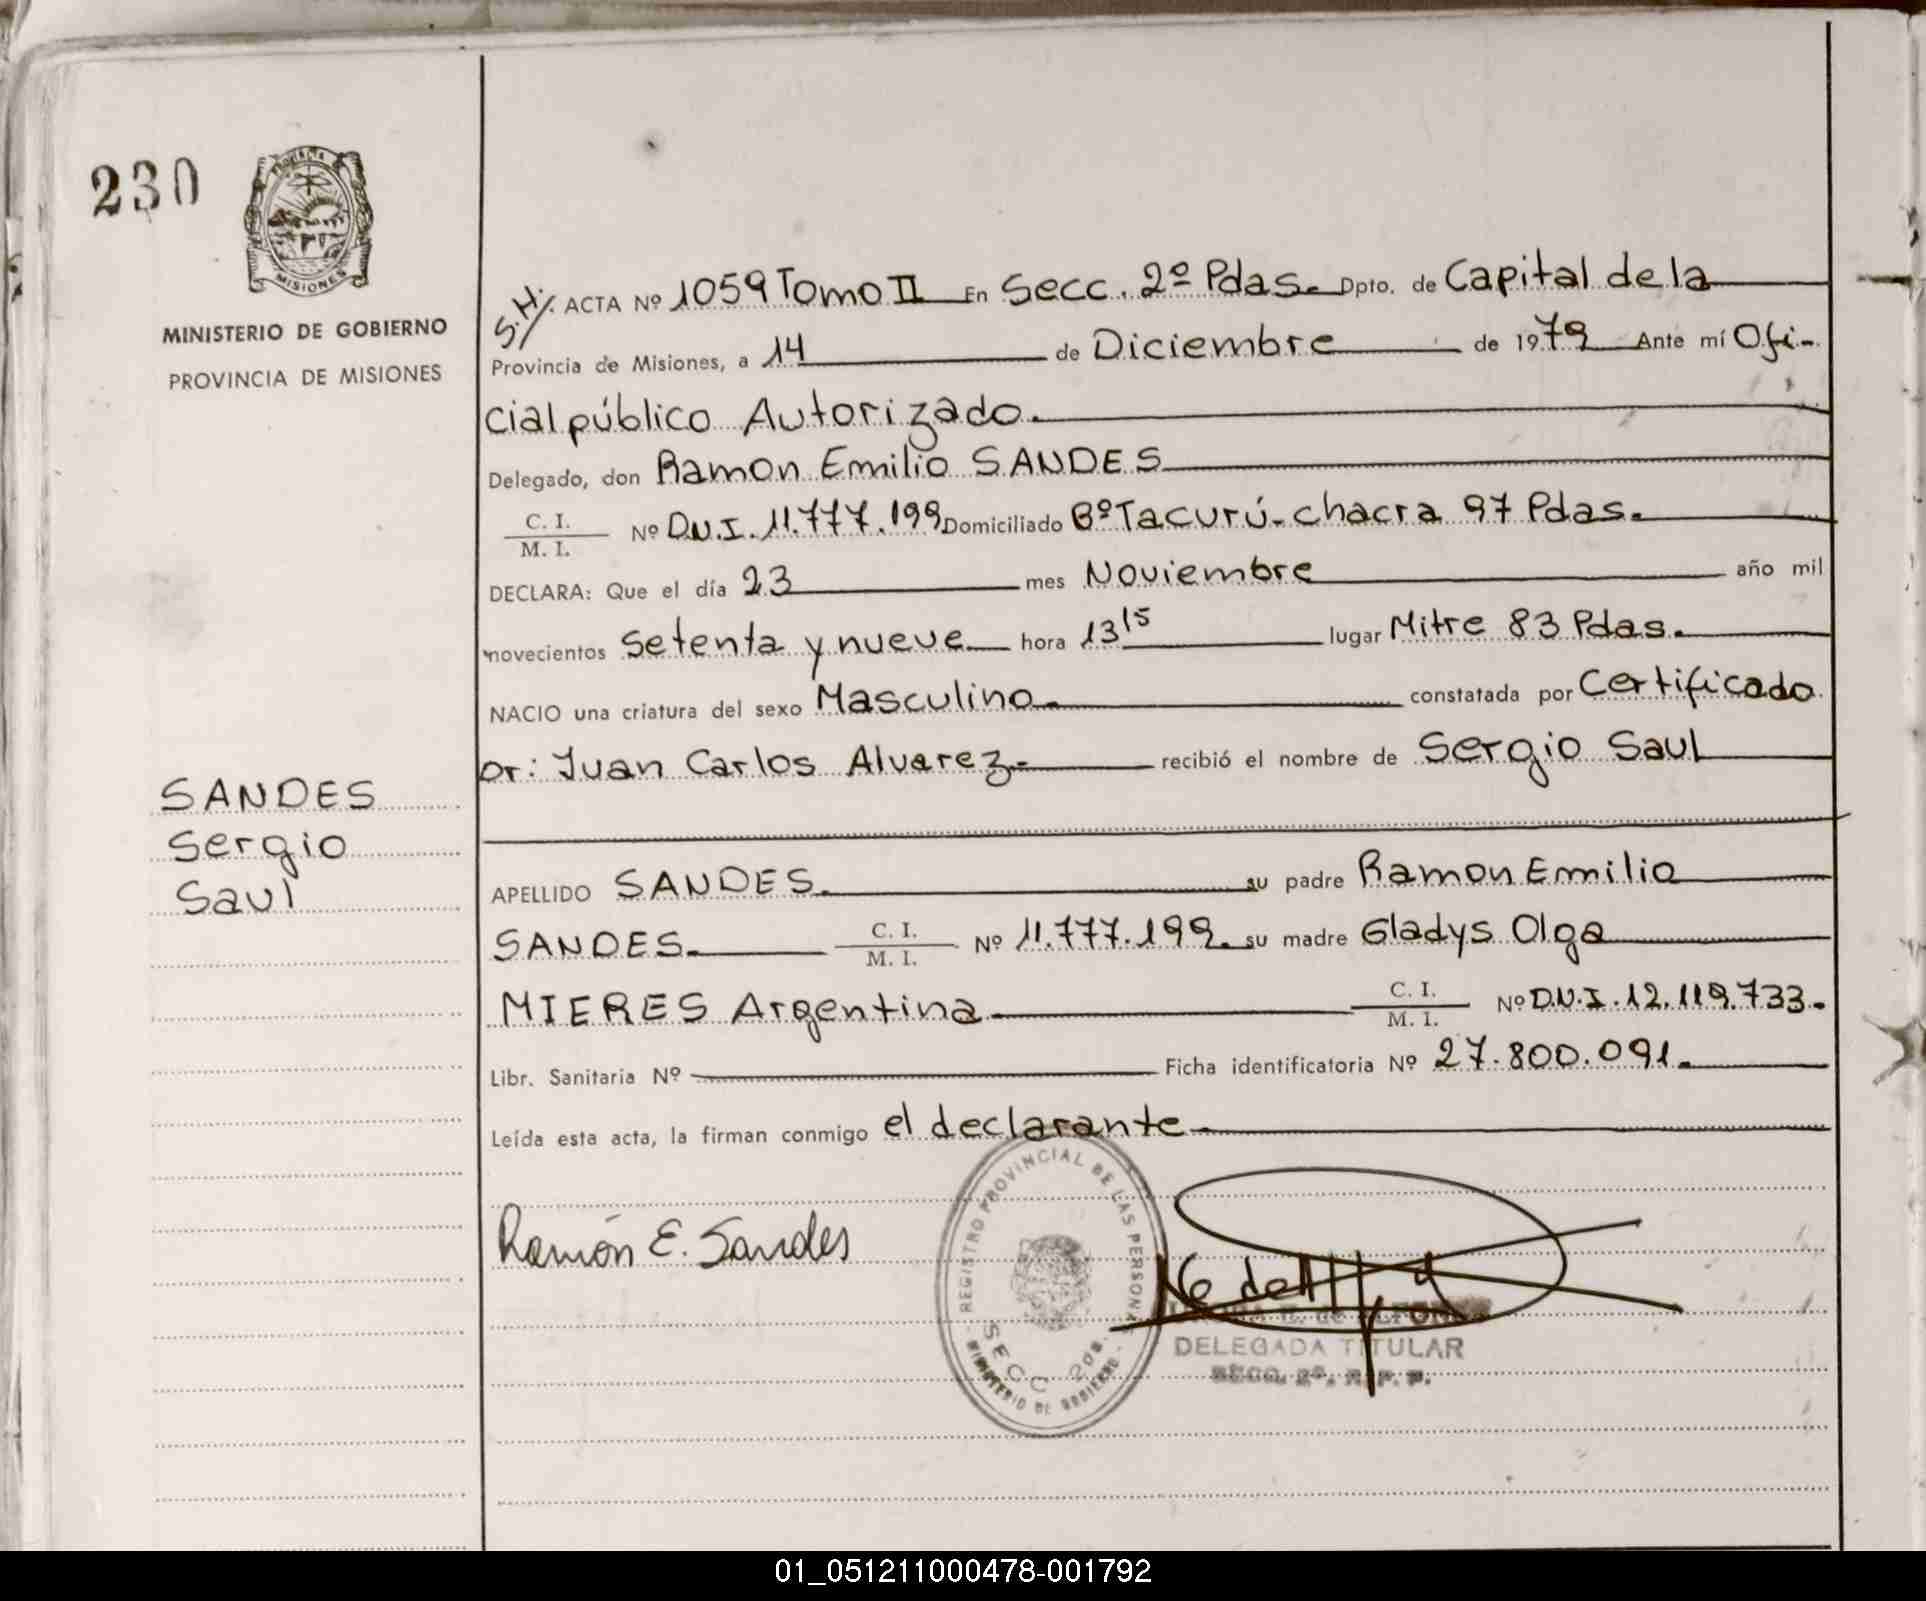 230
PROVINCIA
MISIONES
MINISTERIO DE GOBIERNO
PROVINCIA DE MISIONES
SANDES
Sergio
Saul
S.H/. ACTA Nº 1059 Tomo II En Secc. 2º Pdas. Dpto. de Capital de la
Provincia de Misiones, a 14 de Diciembre de 1979 Ante mí Ofi-
cial público Autorizado.
Delegado, don Ramon Emilio SANDES
C. I.
M. I.
Nº D.N.I. 11.777.199 Domiciliado Bº Tacurú-chacra 97 Pdas.
DECLARA: Que el día 23 mes Noviembre año mil
novecientos setenta y nueve hora 13 15 lugar Mitre 83 Pdas.
NACIO una criatura del sexo Masculino. constatada por Certificado
Dr: Juan Carlos Alvarez- recibió el nombre de Sergio Saul
APELLIDO SANDES. su padre Ramon Emilio
SANDES. C. I. M. I. Nº 11.777.199. su madre Gladys Olga
MIERES Argentina C. I. M. I. Nº D.N.I. 12.119.733.
Libr. Sanitaria Nº Ficha identificatoria Nº 27.800.091.
Leída esta acta, la firman conmigo el declarante
Ramón E. Sandes
REGISTRO PROVINCIAL DE LAS PERSONAS
SECC 2da.
MINISTERIO DE GOBIERNO
DELEGADA TITULAR
SECC. 2º. R. P. P.
01_051211000478-001792